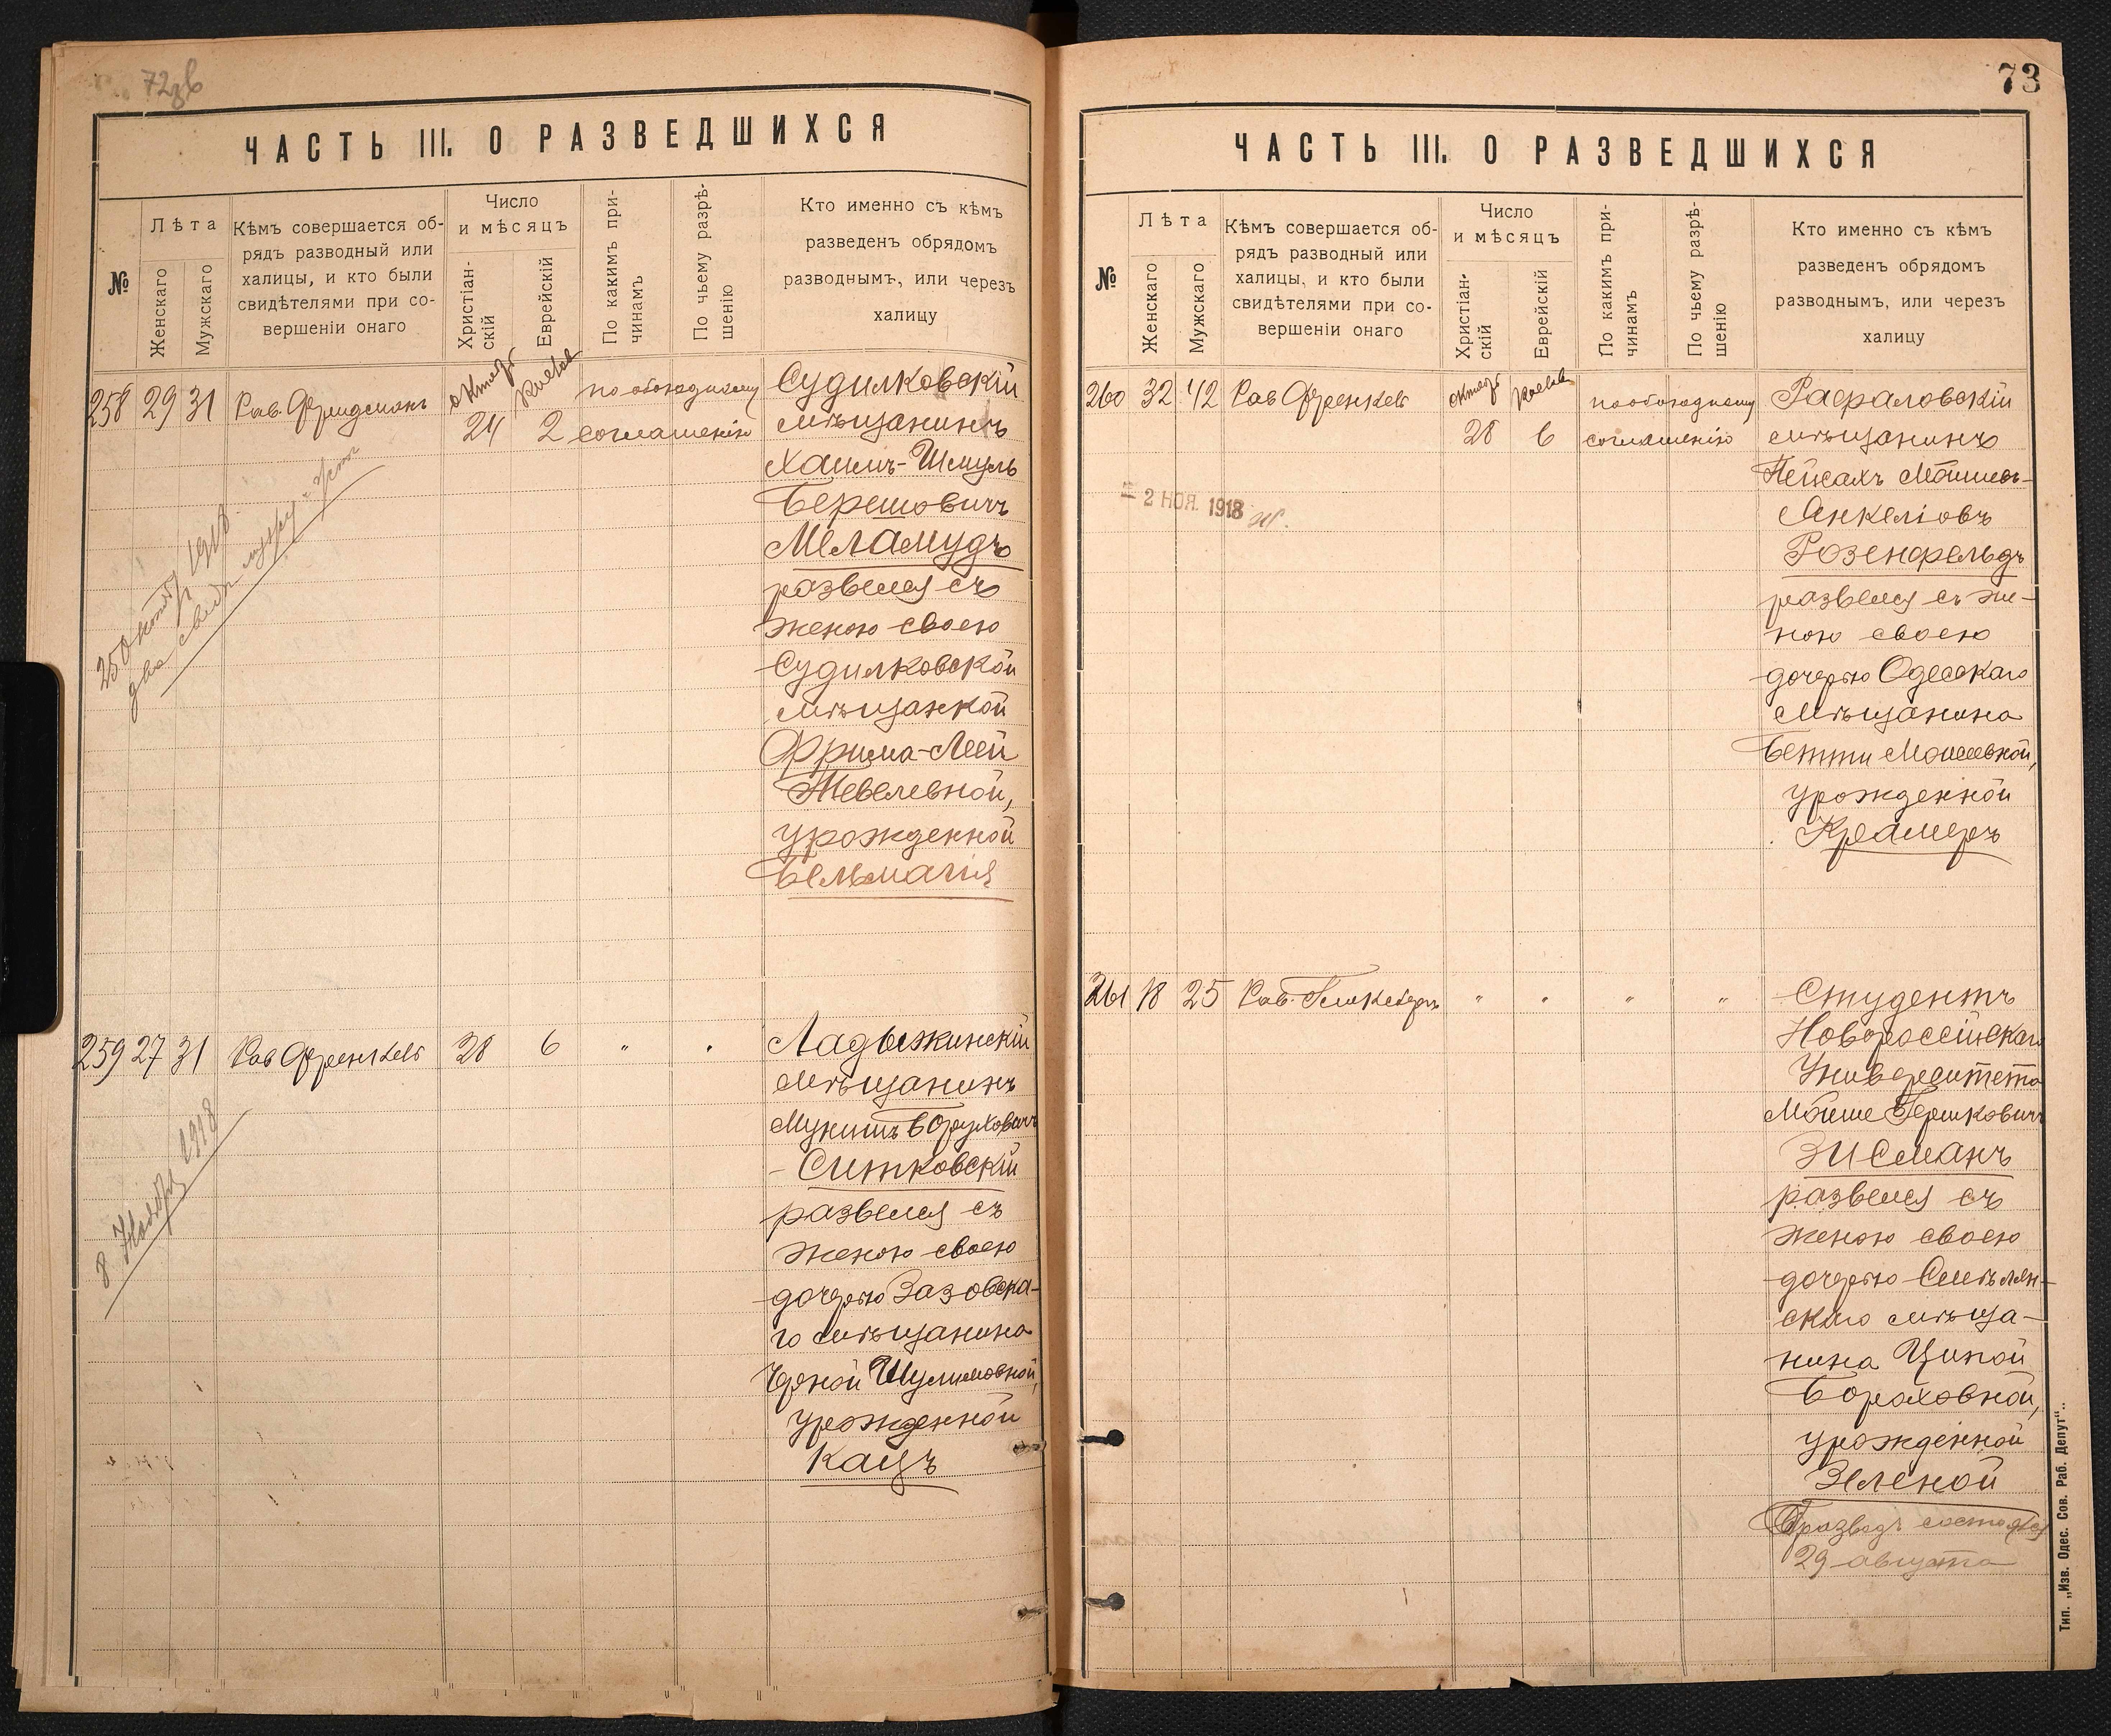 72об
ЧАСТЬ III. О РАЗВЕДШИХСЯ
№
Лѣта
Женскаго
Мужскаго
Кѣмъ совершается об-
рядъ разводный или
халицы, и кто были
свидѣтелями при со-
вершеніи онаго
Число
и мѣсяцъ
Христіан-
скій
Еврейскій
По какимъ при-
чинамъ
По чьему разрѣ-
шенію
Кто именно съ кѣмъ
разведенъ обрядомъ
разводнымъ, или черезъ
халицу
258 29 31 Рав. Фридманъ октяб 24 2 по обоюдному соглашенію
Судилковскій
мѣщанинъ
Хаимъ-Шмуль
Берешовичъ
Меламудъ
развелся съ
женою своею
Судилковской
мѣщанкой
Фрима-Леей
Тевелевной,
урожденной
25 октяб 1918
два свид
259 27 31 Рав Френкель 28 6 " "
Ладыжинскій
мѣщанинъ
Мунишъ Бруховичъ
Ситковскій
развелся съ
женою своею
дочерью Зазовска-
го мѣщанина
Шулимовной,
урожденной
Кацъ
8 Ноября 1918
73
ЧАСТЬ III. О РАЗВЕДШИХСЯ
№
Лѣта
Женскаго
Мужскаго
Кѣмъ совершается об-
рядъ разводный или
халицы, и кто были
свидѣтелями при со-
вершеніи онаго
Число
и мѣсяцъ
Христіан-
скій
Еврейскій
По какимъ при-
чинамъ
По чьему разрѣ-
шенію
Кто именно съ кѣмъ
разведенъ обрядомъ
разводнымъ, или черезъ
халицу
260 32 42 Рав Френкель октяб 28 6 по обоюдному соглашенію
Рафаловскій
мѣщанинъ
Пейсахъ Мошиевъ-
Анкеліовъ
Розенфельдъ
развелся съ же-
ною своею
дочерью Одесскаго
мѣщанина
Бетти Моисеевной,
урожденной
Крамеръ
2 НОЯ. 1918
261 18 25 Рав. Гликбергъ " " " "
Студентъ
Новороссійскаго
Университета
Мойше Гершковичъ
Зисманъ
развелся съ
женою своею
дочерью Смѣлян-
скаго мѣща-
нина Ципой
Бороховной,
урожденной
Зеленой
разводъ состоялся
29 августа
Тип. „Изв. Одес. Сов. Раб. Депут“..